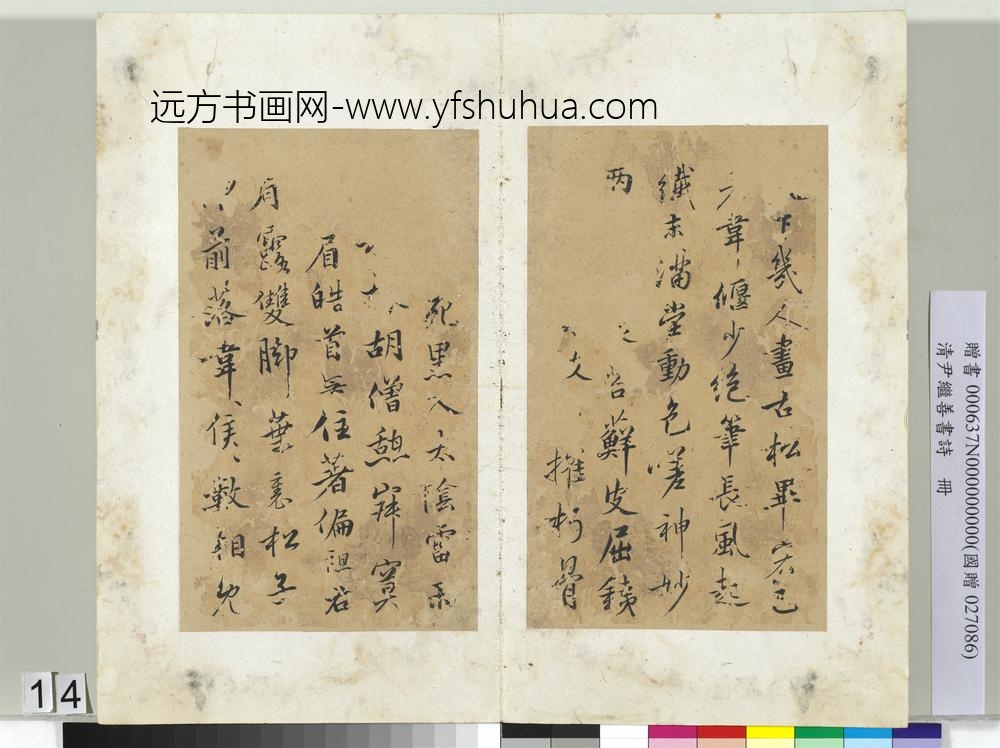 远方书画网-www.yfshuhua.com
下幾人畫古松畢宏已
韋偃少絕筆長風起
纖末滿堂動色嗟神妙
兩 苔蘚皮屈鐵
摧朽骨
死黑入太陰雷雨
胡僧憩寂寞
眉皓首無住著偏袒右
肩露雙脚葉裏松子
前落韋侯數相見
贈書 000637N000000000(國贈 027086)
清尹繼善書詩 冊
14